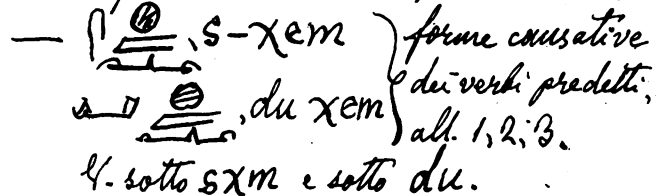 — 𓋴𓐍𓅓, s-χem } forme causative
, du χem } dei verbi predetti, all. 1, 2, 3.
V. sotto sχm e sotto du.